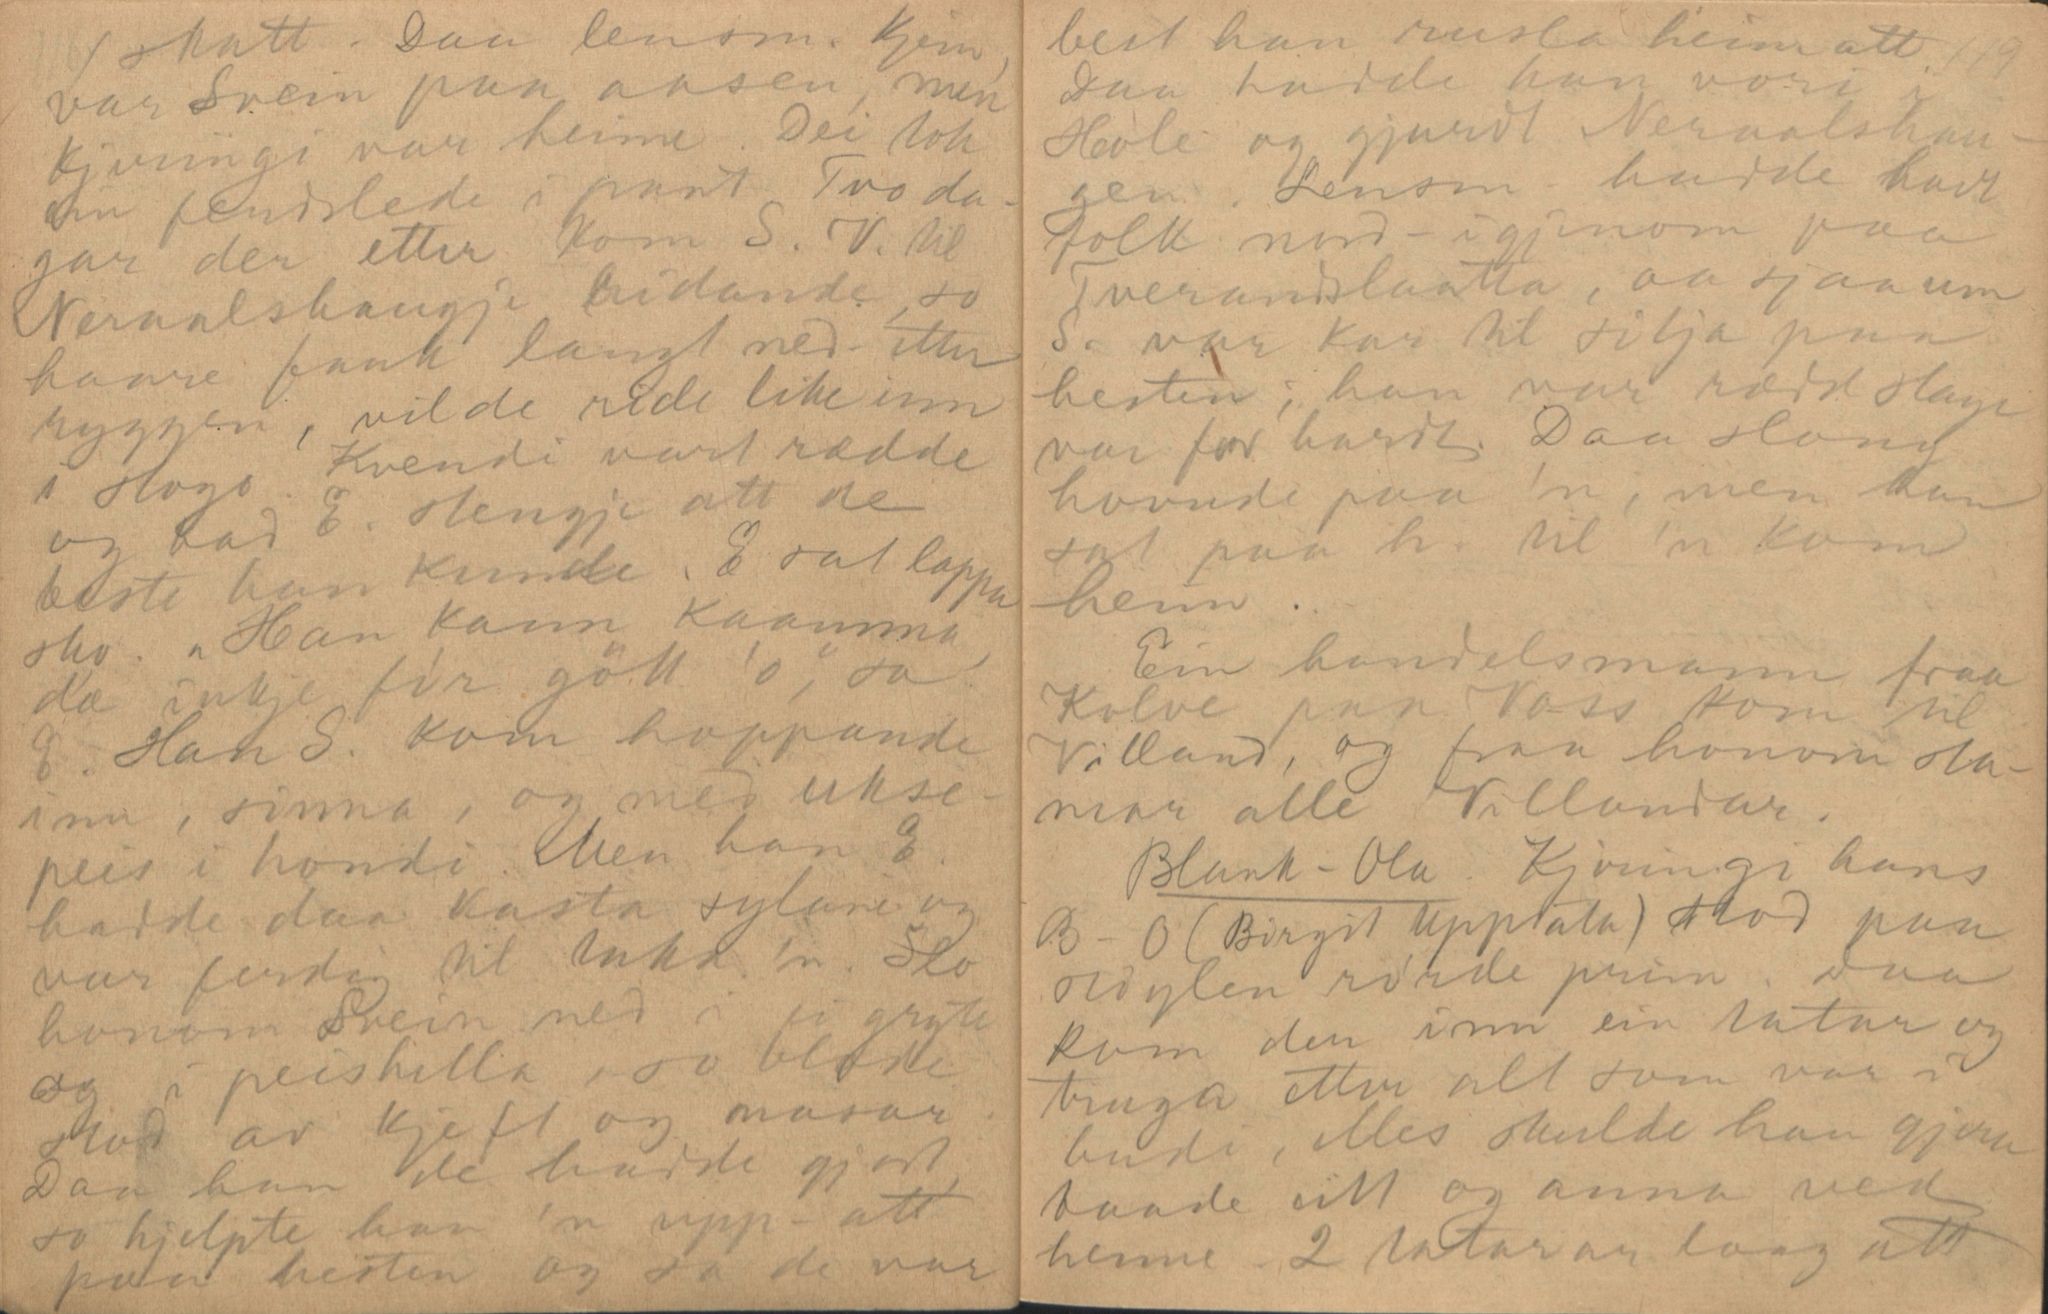 118/ skatt. Daa lensm. kjem,
var Svein paa aasen, men
kjeringi var heime. Dei tok
ein fendslede i pant. Two da-
gar der etter kom S. V. til
Neraalshaugje ridande, so
haare fauk langt ned-etter
ryggen, vilde ride like inn
i stogo. Kvendi vart rædde
og bad E. stengje att de
beste han kunde. E sat lappa
sko. "Han kann kaamma,
dæ inkje fir gött 'o", sa
E. Han S. kom hoppande
inn, sinna, og med ukse-
peis i hondi. Men han E.
hadde daa kasta sylane og
var ferdig til taka 'n. Slo
honom Svein ned i ei gryte
og i peishella, so blode
stod av kjeft og nasar.
Daa han de hadde gjort,
so hjelpte han 'n upp-att
paa hesten og sa de var
best han rusla heim att. 119
Daa hadde han vori i
Hole og gjurdt Neraalshau-
gen. Lensm. hadde havt
folk nord-igjenom paa
Tverandslaatta, aa sjaa um
S. var kar til sitja paa
hesten; han var rædd slage
var for hardt. Daa slong
hovude paa 'n, men han
sat paa h. til 'n kom
heim.
Ein handelsmann fraa
Kolve paa Voss kom til
Villand, og fraa honom sta-
mar alle Villandar.
Blank-Ola. Kjeringi hans
B-O (Birgit Uppsata) stod paa
støylen rørde prim. Daa
kom den inn ein tatar og
truga etter alt som var i
budi, elles skulde han gjera
baade eitt og anna ved
henne. 2 tatarar laag att